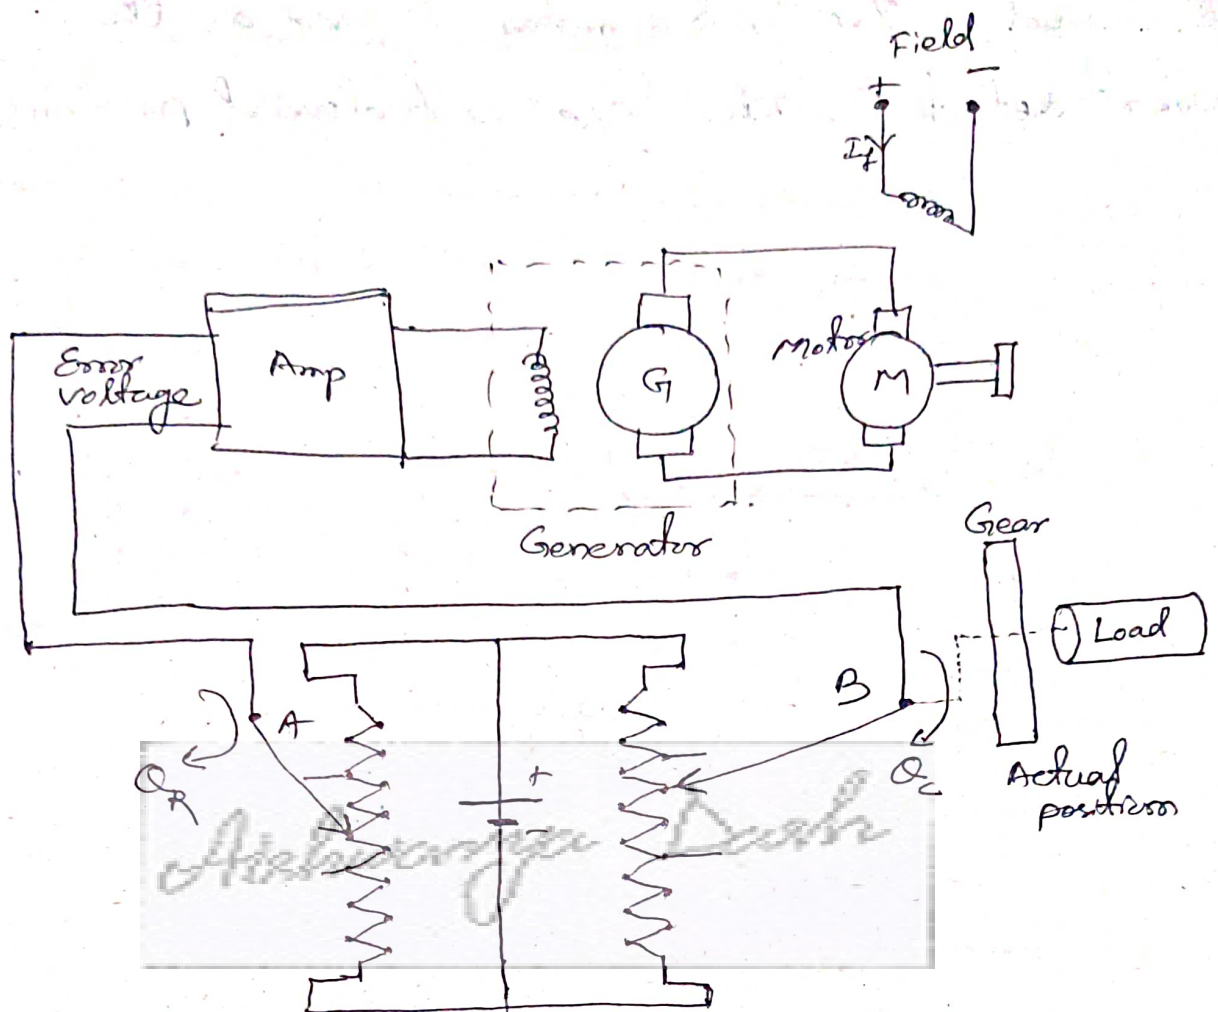 Field
+ −
If
Error
voltage
Amp
G
Motor
M
Generator
Gear
Load
A
B
θR
+
−
θC
Actual
position
Aishwarya Dash